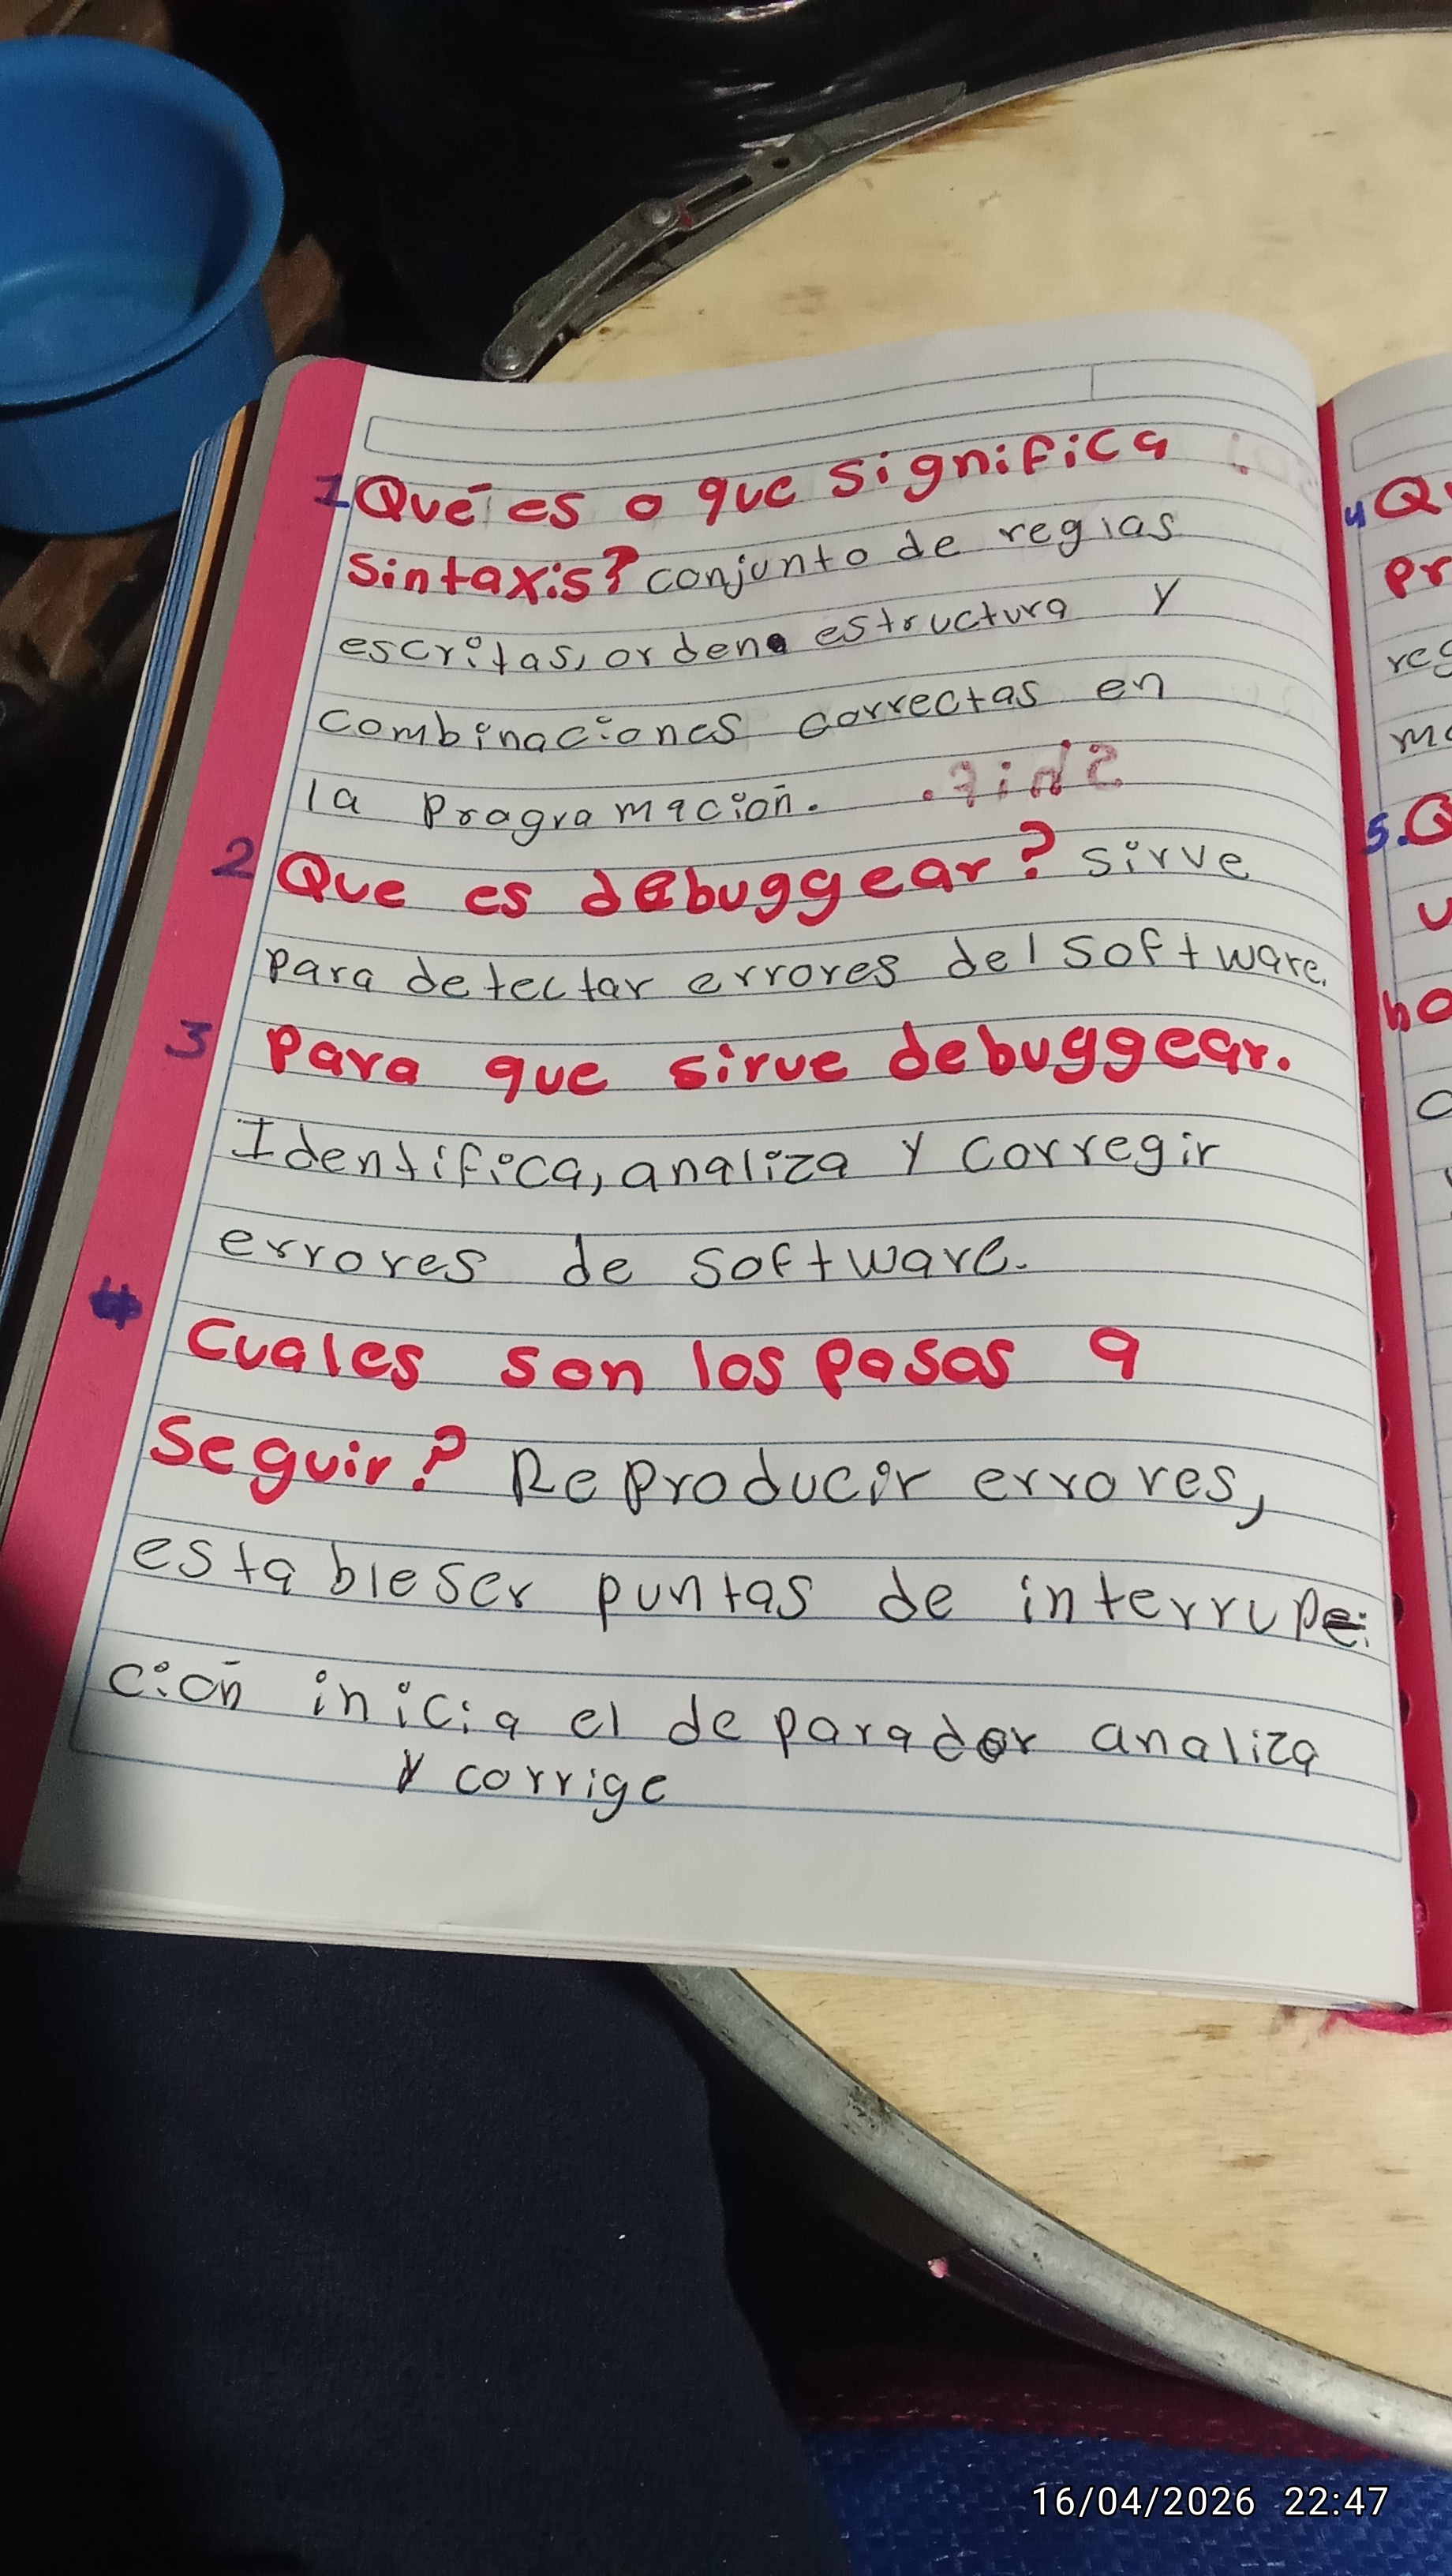 1 Qué es o que significa
sintaxis? conjunto de reglas
escritas, orden estructura y
combinaciones correctas en
la programación.
2 Que es debuggear? sirve
para detectar errores del software.
3 Para que sirve debuggear.
Identifica, analiza y corregir
errores de software.
4 Cuales son los pasos a
seguir? Reproducir errores,
estableser puntos de interrup
ción inicia el deparador analiza
y corrige
4 Q
pr
5.
16/04/2026 22:47